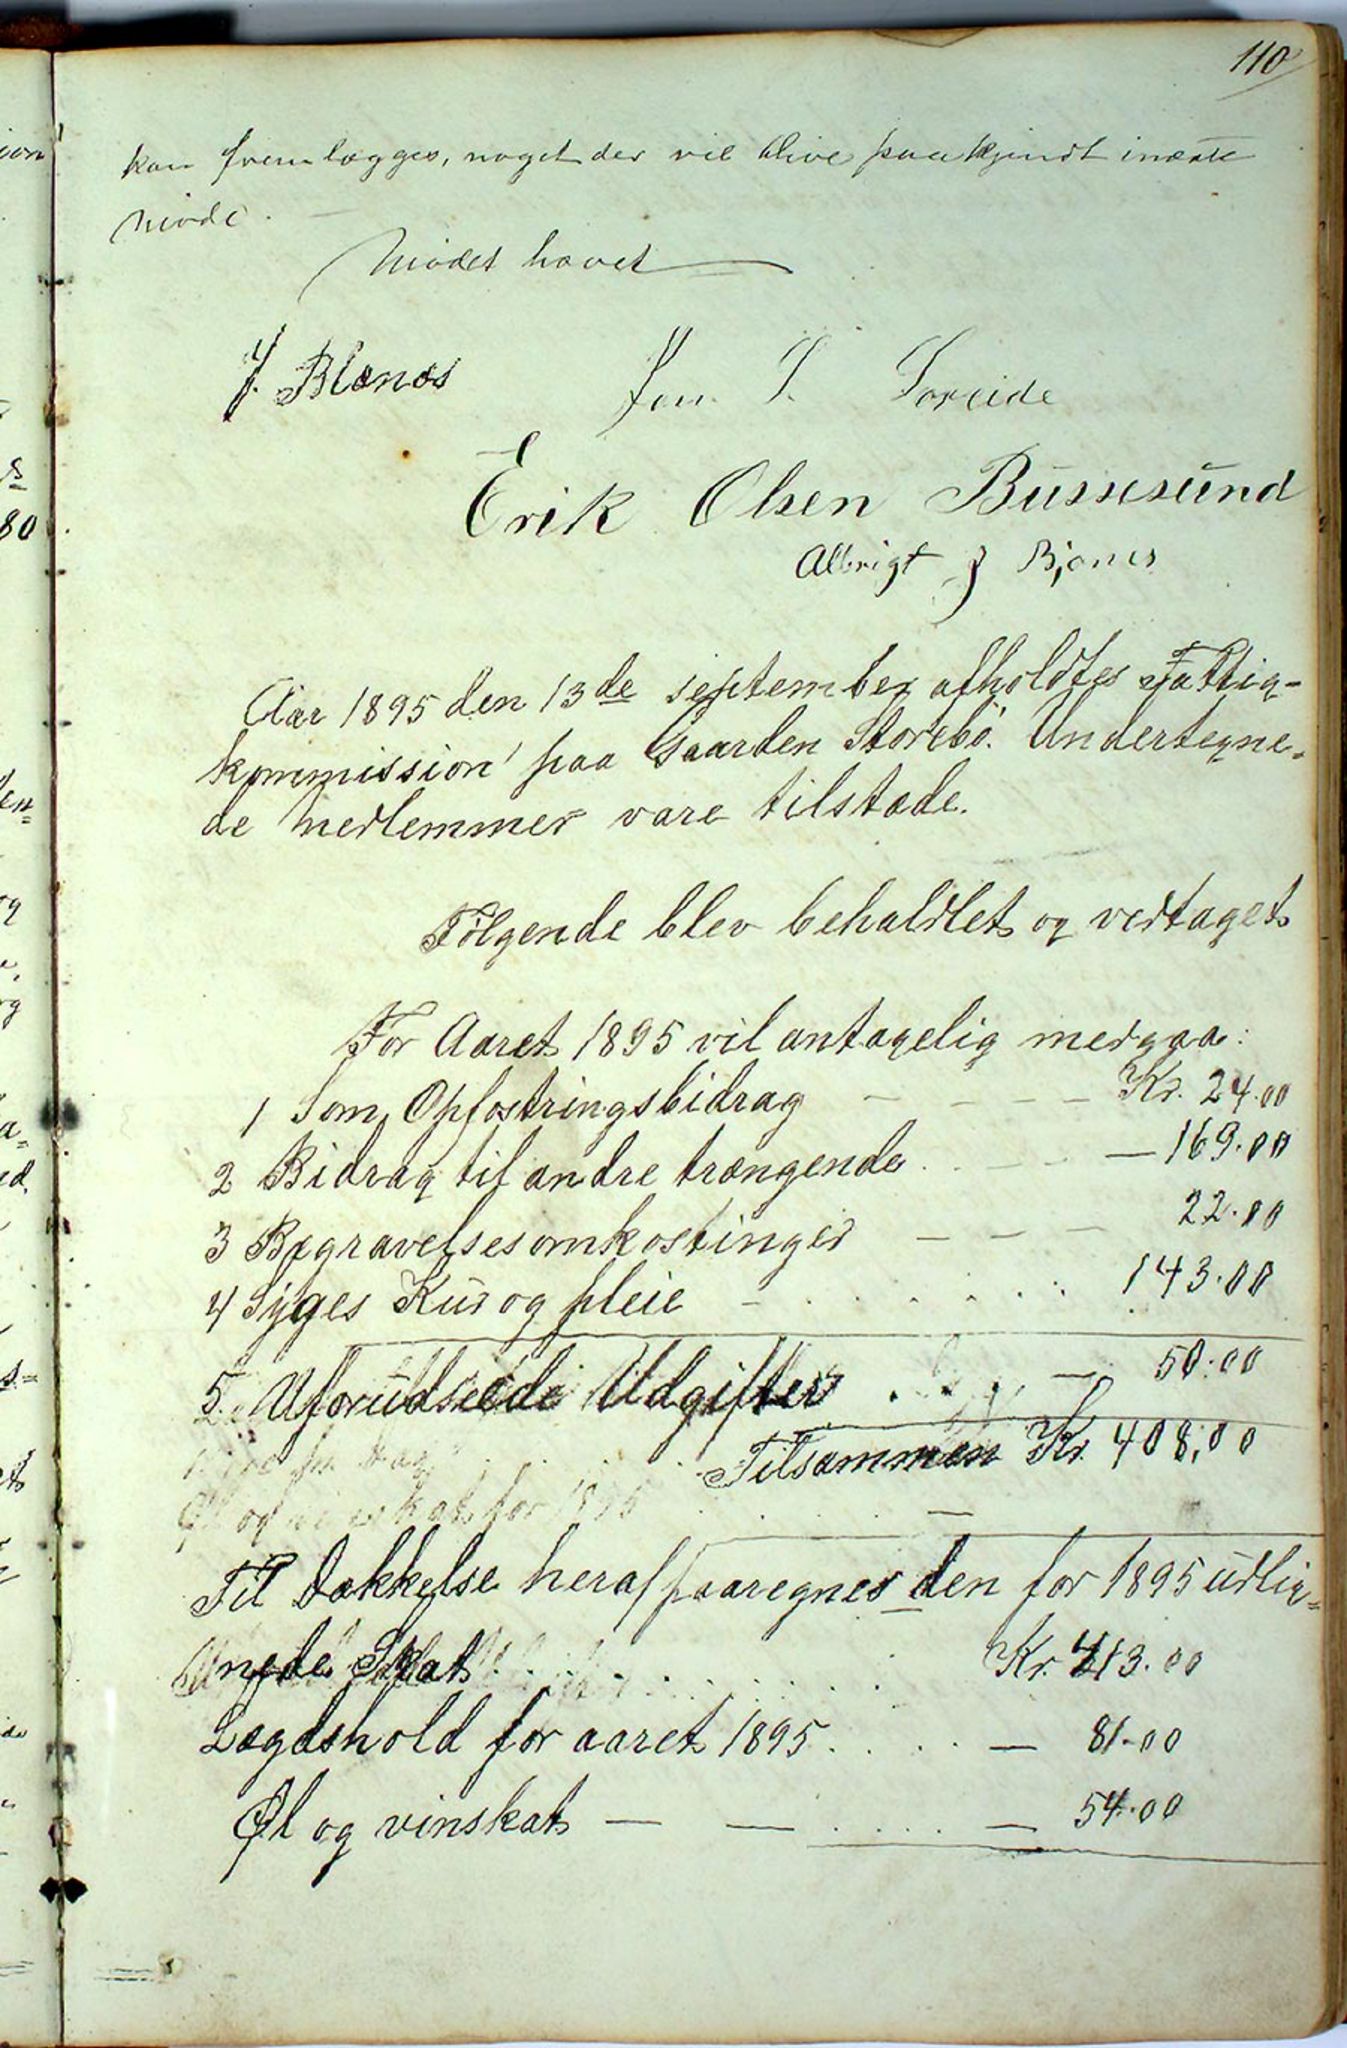 110
kan fremlægges, noget der vil blive paakjendt i næste
Møde.
Mødet hævet
J. Blænæs Jon. T. Soreide
Erik Olsen Bussesund
Albrigt J Bjønes
Aar 1895 den 13de september afholdtes Fattig-
kommission paa Gaarden Storebø. Undertegne-
de Medlemmer vare tilstæde.
Følgende blev behaldlet og vedtaget
For Aaret 1895 vil antagelig medgaa:
1 Som Opfostringsbidrag — — — — Kr. 24.00
2 Bidrag til andre trængende . . — — 169.00
3 Begravelsesomkostinger — — — 22.00
4 Syges Kur og pleie — . . . . . . 143.00
5. Uforudseede Udgifter . . . — 50.00
Tilsammen Kr. 408,00
og for 1895
Til Dækkelse heraf paaregnes den for 1895 udlig=
nede Skat . . . . . . . . Kr. 213.00
Lægdshold for aaret 1895 . . . . — 81.00
Øl og vinskat — — . . . . — 54.00